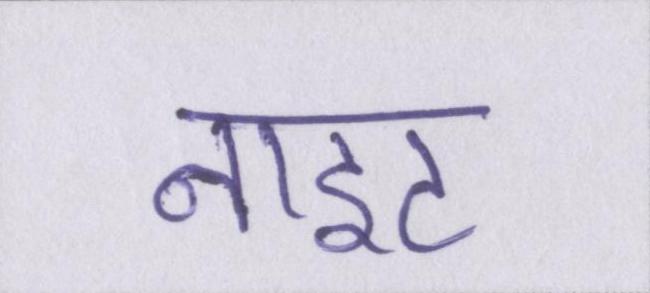 नाइट